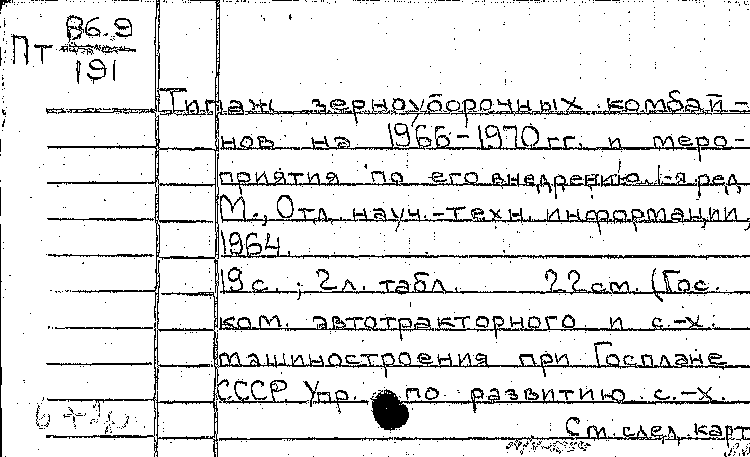 Пт В6.9
191
Типаж зерноуборочных комбай-
нов на 1966-1970 гг. и меро-
приятия по его внедрению. 1-я ред.
М., Отд. науч.-техн. информации,
1964.
19 с.; 2 л. табл. 22 см. (Гос.
ком. автотракторного и с.-х.
машиностроения при Госплане
СССР. Упр. по развитию с.-х.
См. след. карт